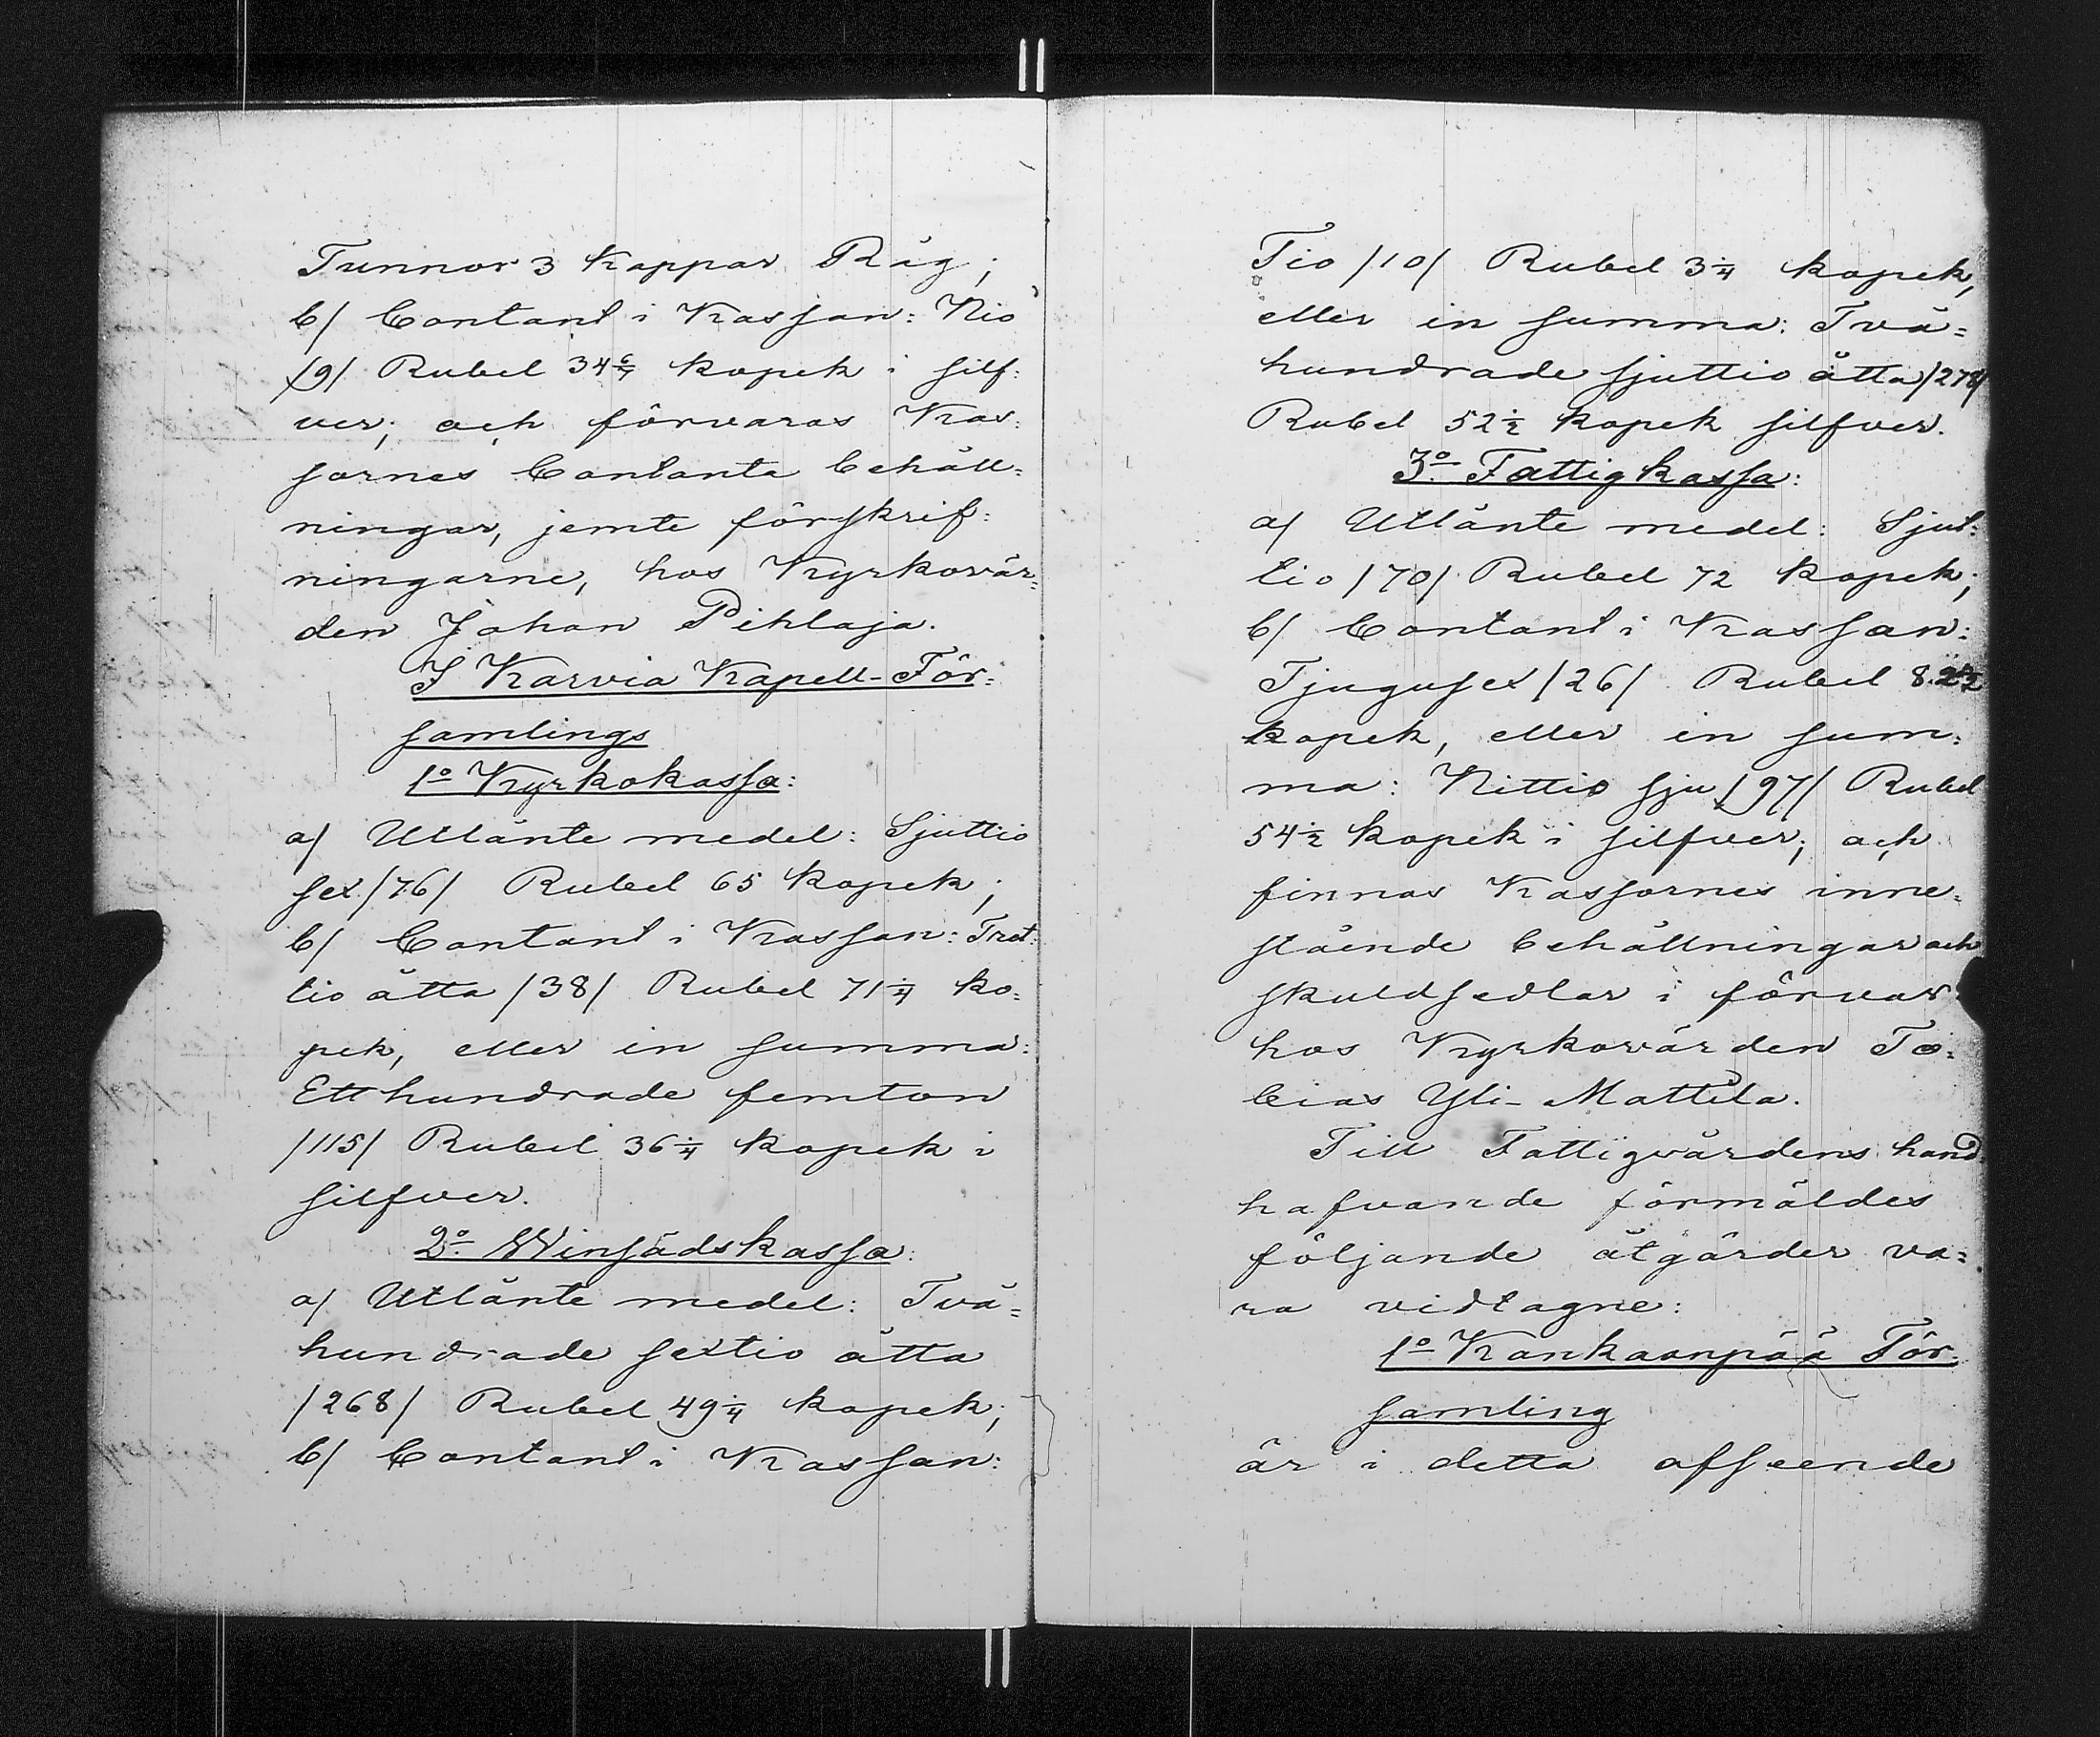 Tunnor 3 kappar Råg;
b/ Contant i Kassan: Nio
/9/ Rubel 34 6/7 kopek i silf:
ver; och förvaras Kas:
sornes Contanta behåll:
ningar, jemte förskrif:
ningarne, hos Kyrkovär:
den Johan Pihlaja.
I Karvia Kapell-För:
samlings
1o Kyrkokassa:
a/ Utlånte medel: Sjuttio
sex /76/ Rubel 65 kopek;
b/ Contant i Kassan: Tret:
tio åtta /38/ Rubel 71 1/4 ko:
pek, eller in summa:
Ett hundrade femton
/115/ Rubel 36 1/4 kopek i
silfver.
2o Winsädskassa:
a/ Utlånte medel: Två:
hundrade sextio åtta
/268/ Rubel 49 1/4 kopek;
b/ Contant i Kassan:
Tio /10/ Rubel 3 1/4 kopek,
eller in summa: Två:
hundrade sjuttio åtta /278/
Rubel 52 1/2 kopek silfver.
3o Fattigkassa:
a/ Utlånte medel: Sjut:
tio /70/ Rubel 72 kopek;
b/ Contant i Kassan:
Tjugusex /26/ Rubel
kopek, eller in sum:
ma: Nittio sju /97/ Rubel
54 1/2 kopek i silfver; och
finnas Kassornes inne:
stående behållningar och
skuldsedlar i förvar
hos Kyrkovärden To:
bias Yli-Mattila.
Till Fattigvårdens hand:
hafvande förmäldes
följande åtgärder va:
ra vidtagne:
1o Kankaanpää För:
samling
är i detta afseende